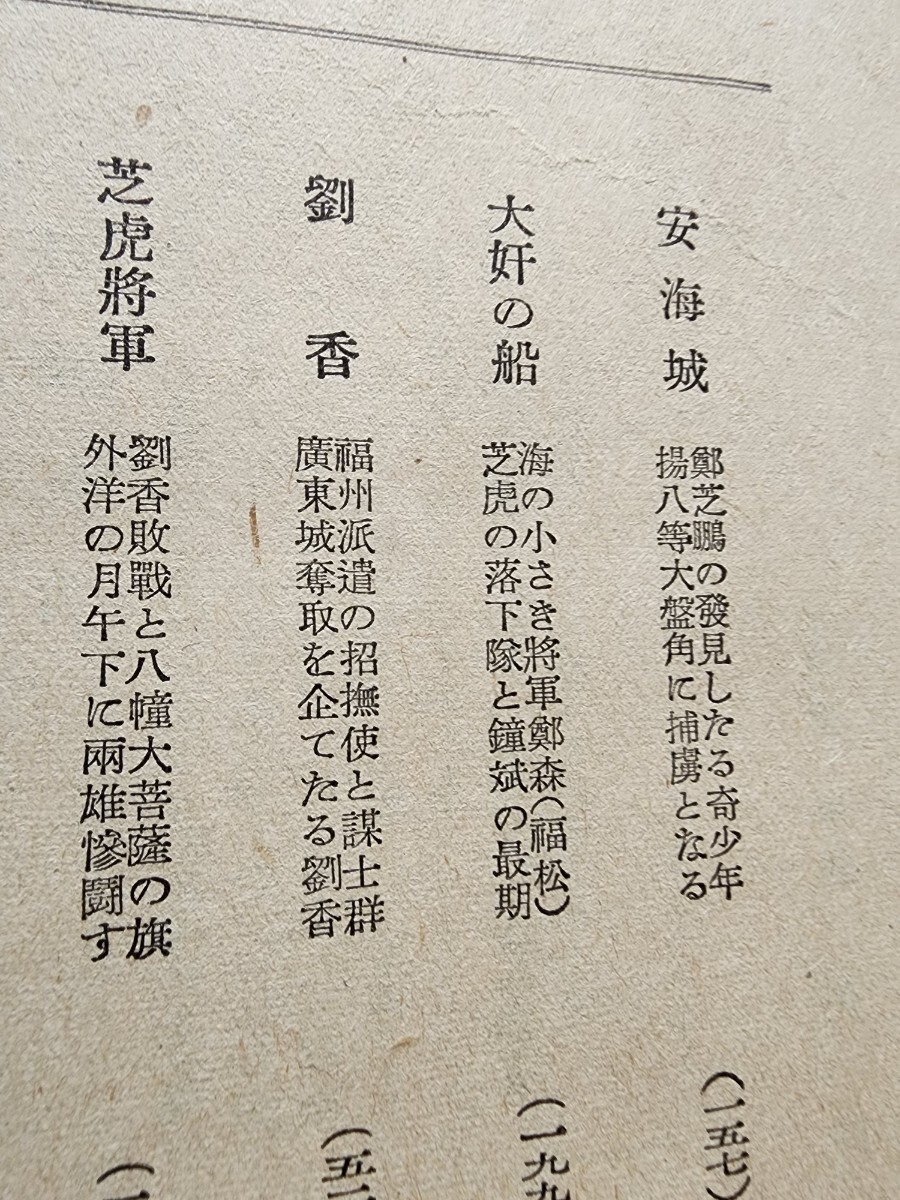 安海城
鄭芝鵬の發見したる奇少年
揚八等大盤角に捕虜となる
(一五七)
大奸の船
海の小さき將軍鄭森(福松)
芝虎の落下隊と鐘斌の最期
(一九九
劉香
福州派遣の招撫使と謀士群
廣東城奪取を企てたる劉香
(五二
芝虎將軍
劉香敗戰と八幢大菩薩の旗
外洋の月午下に兩雄慘鬪す